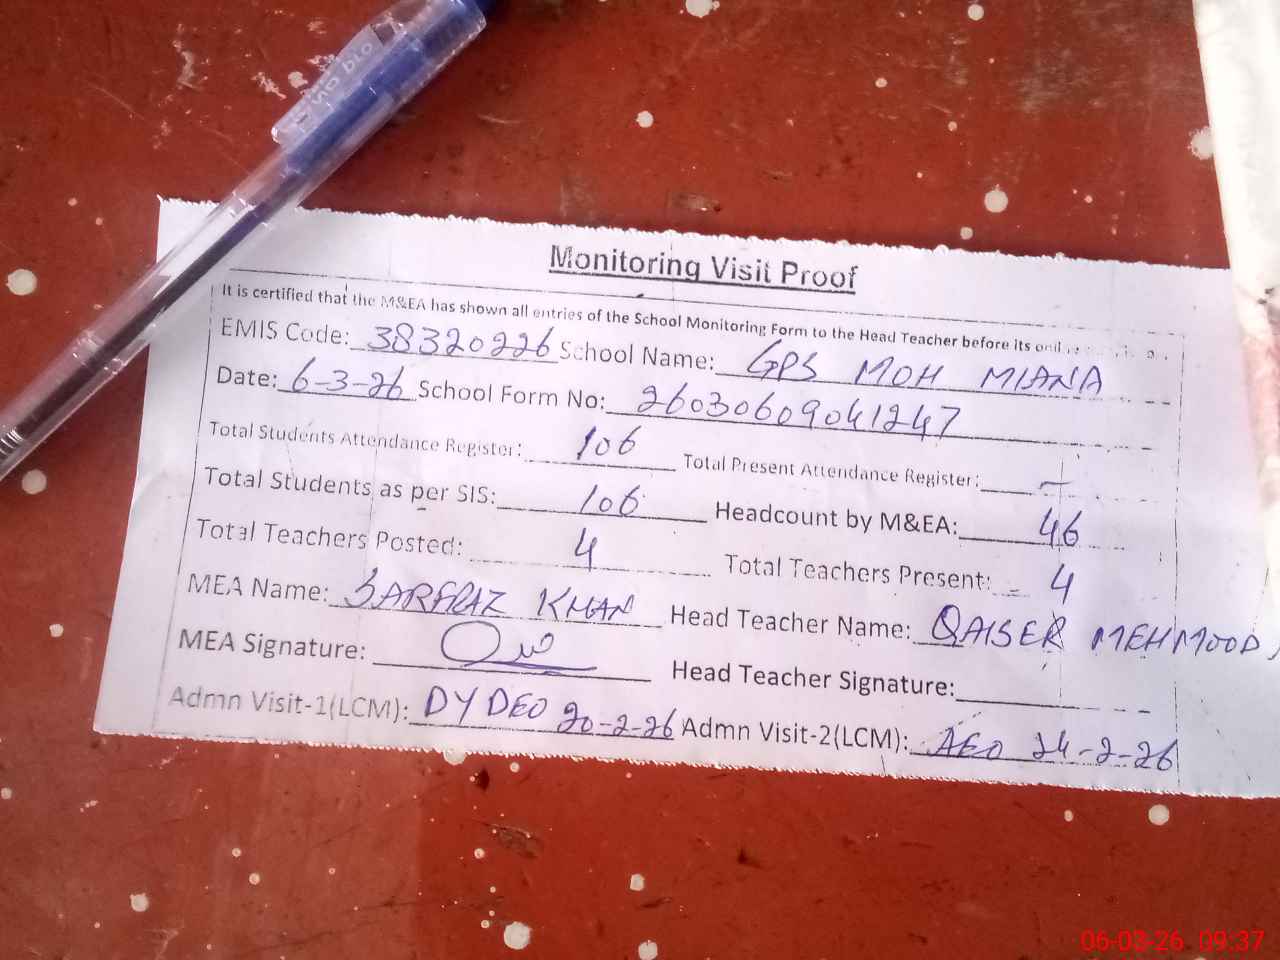 Monitoring Visit Proof
It is certified that the M&EA has shown all entries of the School Monitoring Form to the Head Teacher before its
EMIS Code: 38320226 School Name: GPS MOH MIANA
Date: 6-3-26 School Form No: 26030609041247
Total Students Attendance Register: 106 Total Present Attendance Register: —
Total Students as per SIS: 106 Headcount by M&EA: 46
Total Teachers Posted: 4 Total Teachers Present: 4
MEA Name: SARFRAZ KHAN Head Teacher Name: QAISER MEHMOOD
MEA Signature: Head Teacher Signature:
Admn Visit-1(LCM): DY DEO 20-2-26 Admn Visit-2(LCM): AEO 24-2-26
06-03-26 09:37